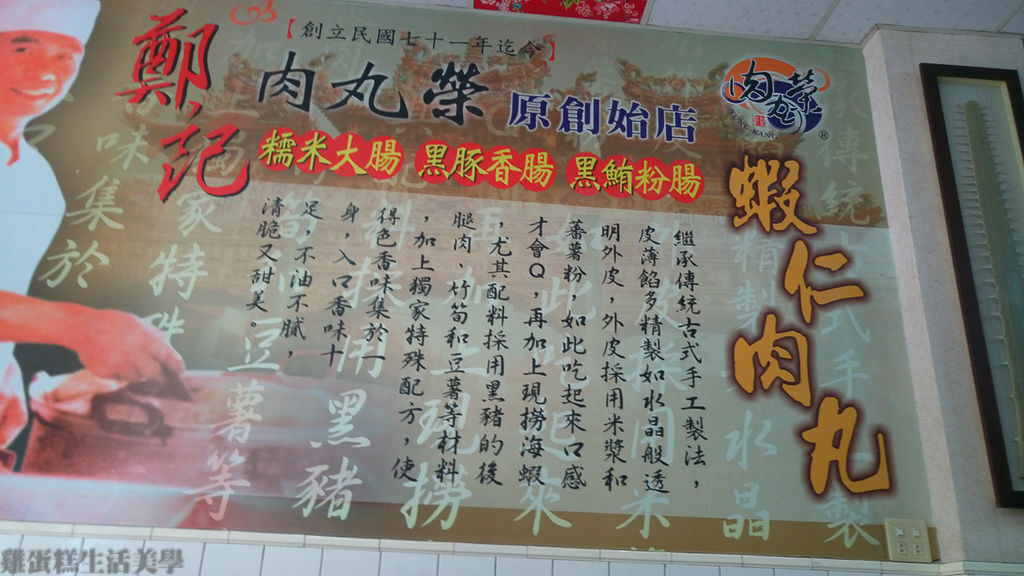 鄭記
【創立民國七十一年迄今】
肉丸榮
原創始店
肉丸榮
®
糯米大腸 黑豚香腸 黑鮪粉腸
蝦仁肉丸
繼承傳統古式手工製法，
皮薄餡多精製如水晶般透
明外皮，外皮採用米漿和
蕃薯粉，如此吃起來口感
才會Q，再加上現撈海蝦
，尤其配料採用黑豬的後
腿肉、竹筍和豆薯等材料
，加上獨家特殊配方，使
得色香味集於一
身，入口香味十
足，不油不膩，
清脆又甜美。
雞蛋糕生活美學